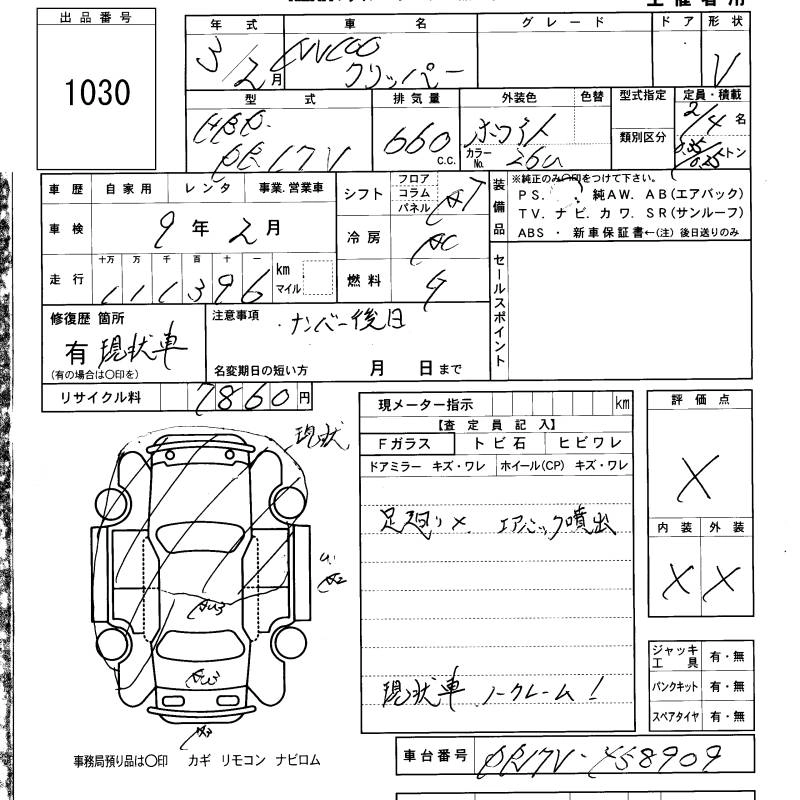 出品番号
1030
年式 車名 グレード ドア 形状
3/2月 NV100 クリッパー V
型式 排気量 外装色 色替 型式指定 定員・積載
HBD- DR17V 660 c.c. ホワイト カラーNo. 26U 類別区分 2/4名 0.35/0.25トン
車歴 自家用 レンタ 事業.営業車 シフト フロア コラム パネル AT
装備品 ※純正のみ〇印をつけて下さい。
PS. 純AW. AB(エアバック)
TV. ナビ. カワ. SR(サンルーフ)
ABS ・ 新車保証書←(注) 後日送りのみ
車検 9年2月 冷房 AC
走行 十万 万 千 百 十 一 111396 km マイル 燃料 G
セールスポイント
修復歴 箇所
有 現状車
(有の場合は〇印を)
注意事項 ナンバー後日
名変期日の短い方 月 日まで
リサイクル料 7860円
現状
A2
AU3
AU3
A3
事務局預り品は〇印 カギ リモコン ナビロム
現メーター指示 km
【査定員記入】
Fガラス トビ石 ヒビワレ
ドアミラー キズ・ワレ ホイール(CP) キズ・ワレ
足廻り×. エアバック噴出
現状車 ノークレーム!
評価点
X
内装 外装
X X
ジャッキ工具 有・無
パンクキット 有・無
スペアタイヤ 有・無
車台番号 DR17V-458909